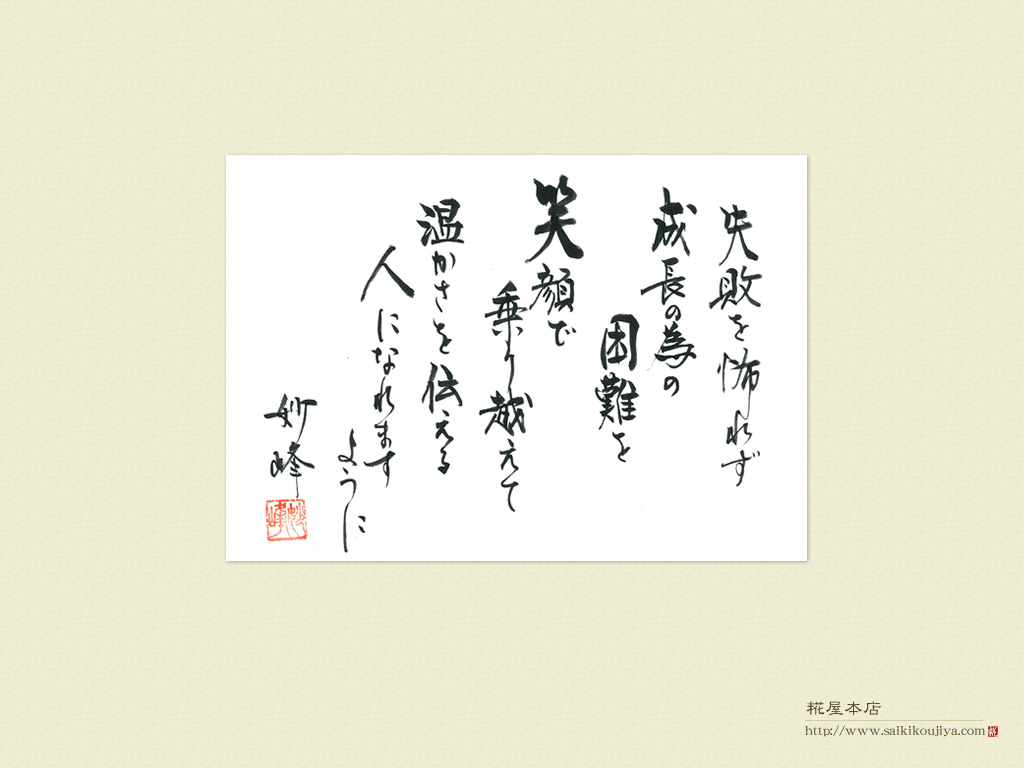 失敗を怖れず
成長の為の
困難を
笑顔で
乗り越えて
温かさを伝える
人になれます
ように
妙峰
妙峰
糀屋本店
http://www.saikikoujiya.com
糀